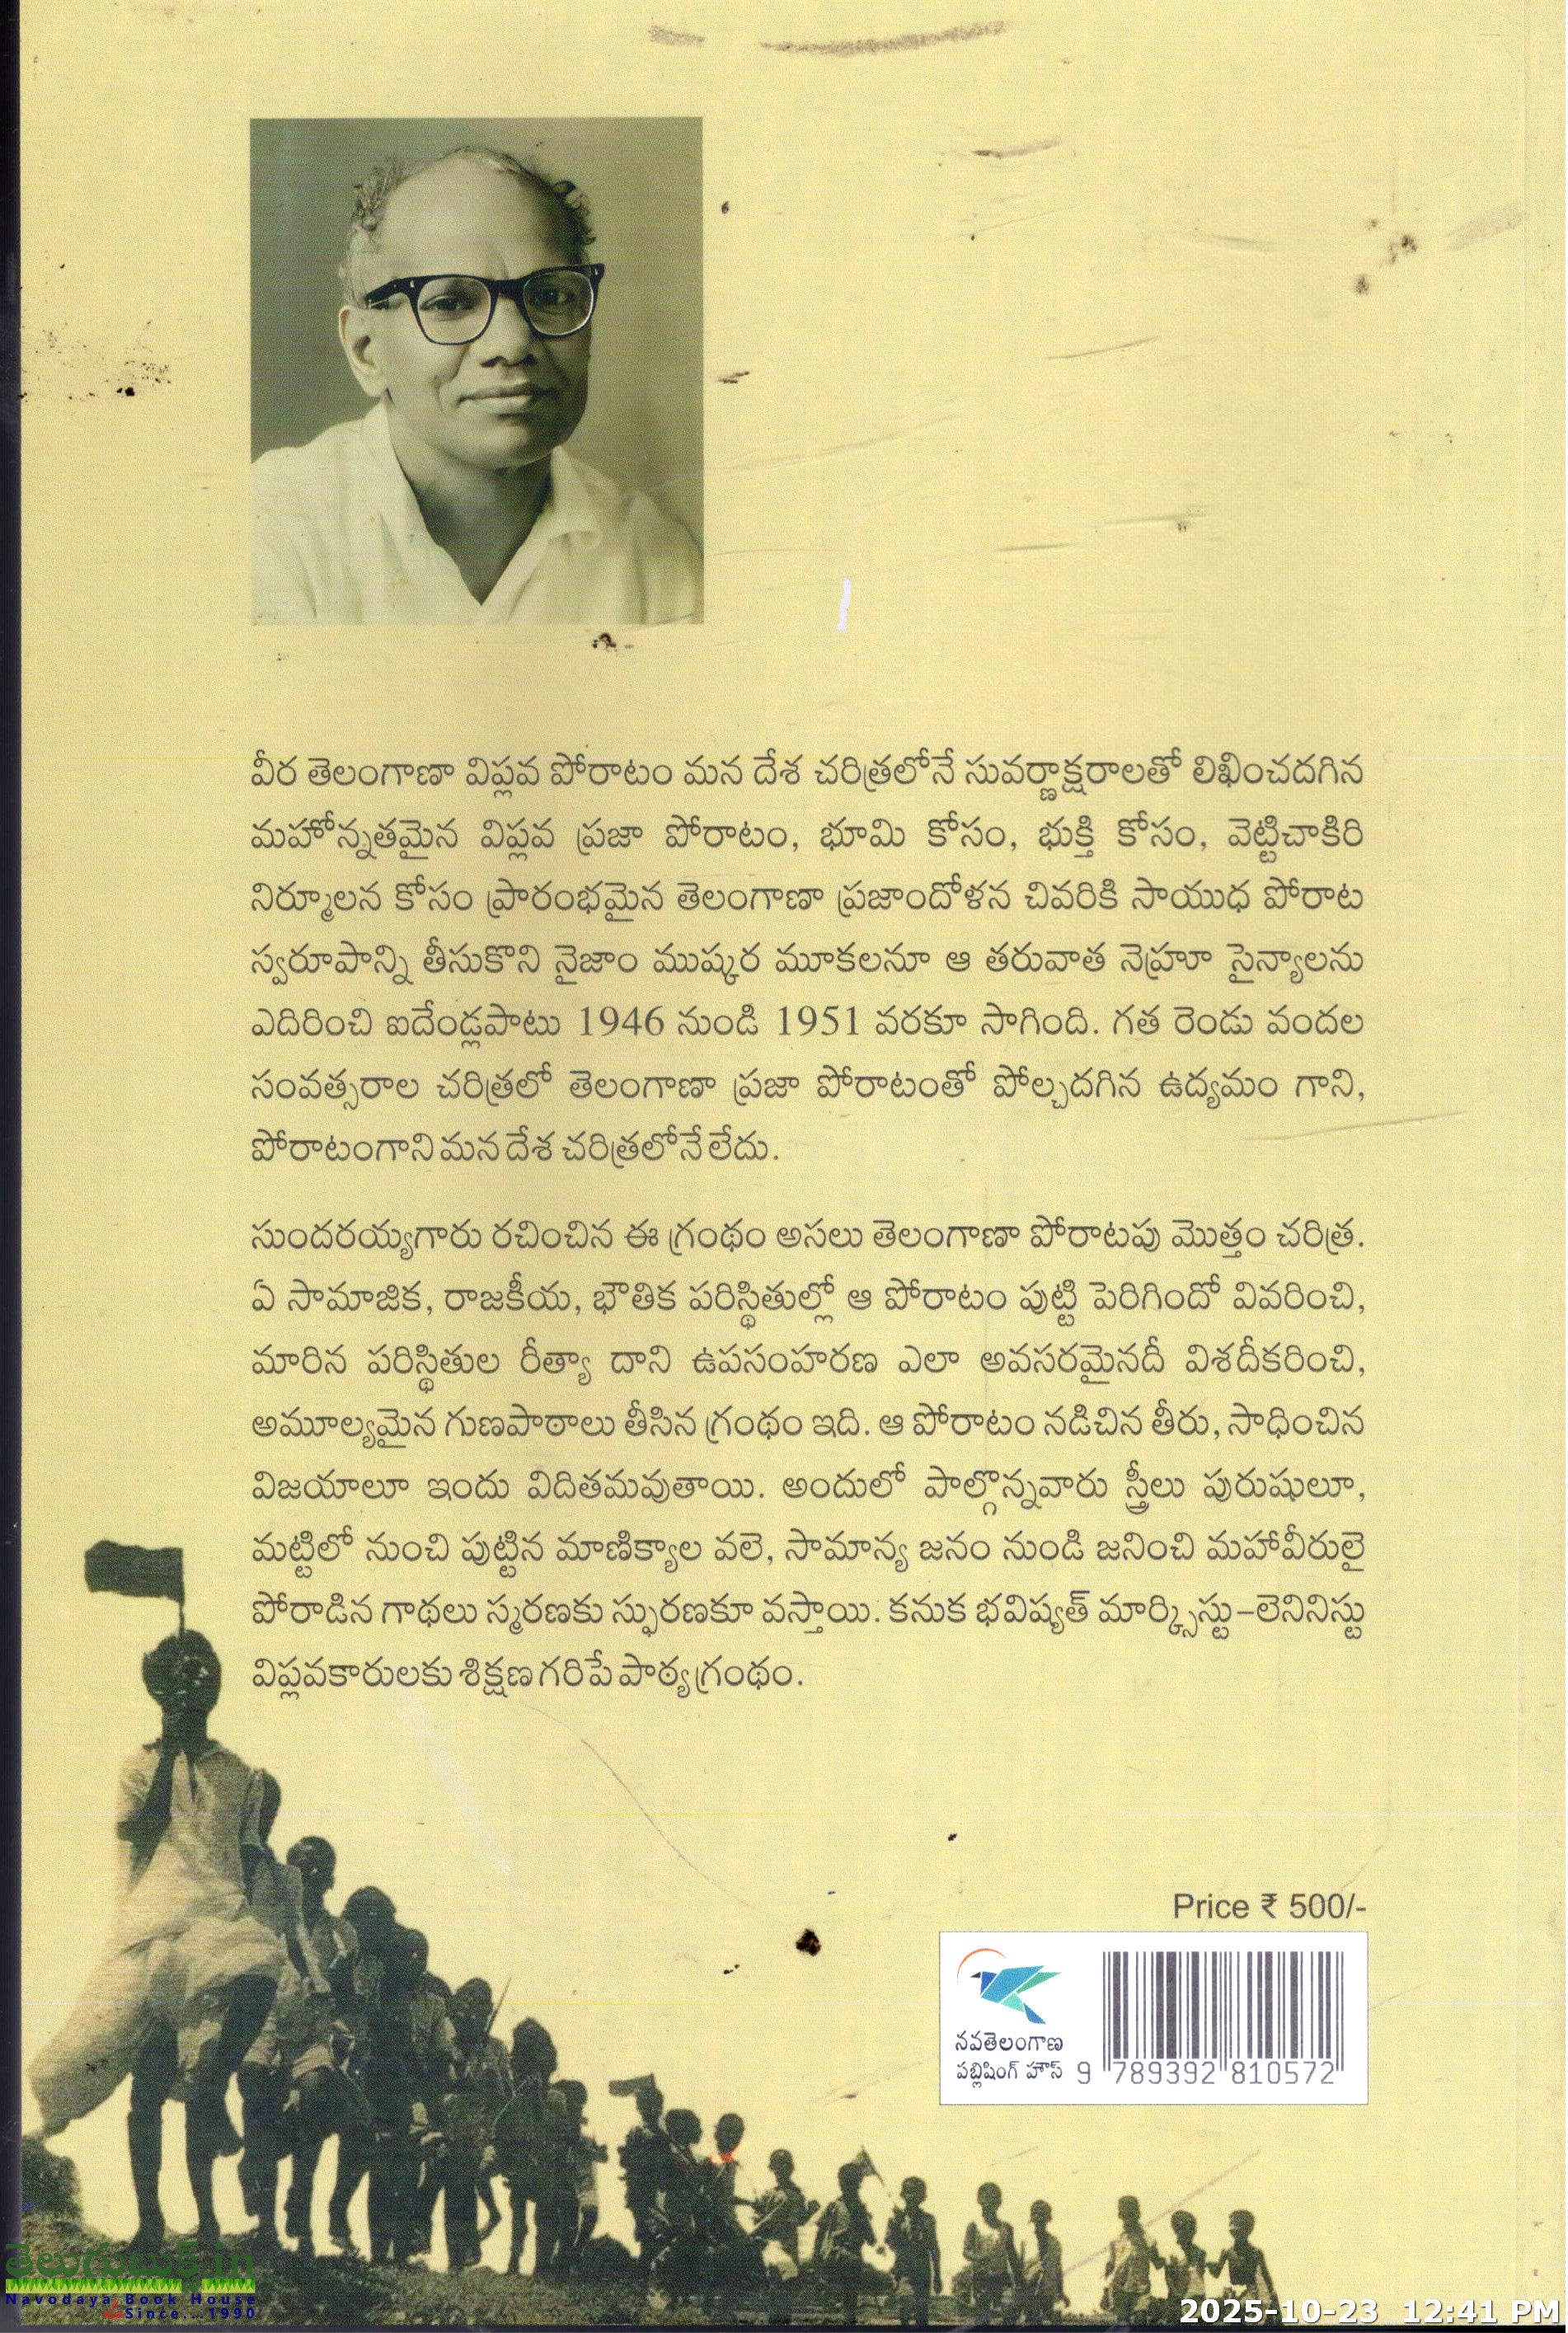 వీర తెలంగాణా విప్లవ పోరాటం మన దేశ చరిత్రలోనే సువర్ణాక్షరాలతో లిఖించదగిన
మహోన్నతమైన విప్లవ ప్రజా పోరాటం, భూమి కోసం, భుక్తి కోసం, వెట్టిచాకిరి
నిర్మూలన కోసం ప్రారంభమైన తెలంగాణా ప్రజాందోళన చివరికి సాయుధ పోరాట
స్వరూపాన్ని తీసుకొని నైజాం ముష్కర మూకలనూ ఆ తరువాత నెహ్రూ సైన్యాలను
ఎదిరించి ఐదేండ్లపాటు 1946 నుండి 1951 వరకూ సాగింది. గత రెండు వందల
సంవత్సరాల చరిత్రలో తెలంగాణా ప్రజా పోరాటంతో పోల్చదగిన ఉద్యమం గాని,
పోరాటంగాని మన దేశ చరిత్రలోనే లేదు.
సుందరయ్యగారు రచించిన ఈ గ్రంథం అసలు తెలంగాణా పోరాటపు మొత్తం చరిత్ర.
ఏ సామాజిక, రాజకీయ, భౌతిక పరిస్థితుల్లో ఆ పోరాటం పుట్టి పెరిగిందో వివరించి,
మారిన పరిస్థితుల రీత్యా దాని ఉపసంహరణ ఎలా అవసరమైనదీ విశదీకరించి,
అమూల్యమైన గుణపాఠాలు తీసిన గ్రంథం ఇది. ఆ పోరాటం నడిచిన తీరు, సాధించిన
విజయాలూ ఇందు విదితమవుతాయి. అందులో పాల్గొన్నవారు స్త్రీలు పురుషులూ,
మట్టిలో నుంచి పుట్టిన మాణిక్యాల వలె, సామాన్య జనం నుండి జనించి మహావీరులై
పోరాడిన గాథలు స్మరణకు స్ఫురణకూ వస్తాయి. కనుక భవిష్యత్ మార్క్సిస్టు-లెనినిస్టు
విప్లవకారులకు శిక్షణ గరిపే పాఠ్యగ్రంథం.
Price ₹ 500/-
నవతెలంగాణ
పబ్లిషింగ్ హౌస్
9 789392 810572
తెలుగుబుక్స్.in
Navodaya Book House
Since...1990
2025-10-23 12:41 PM